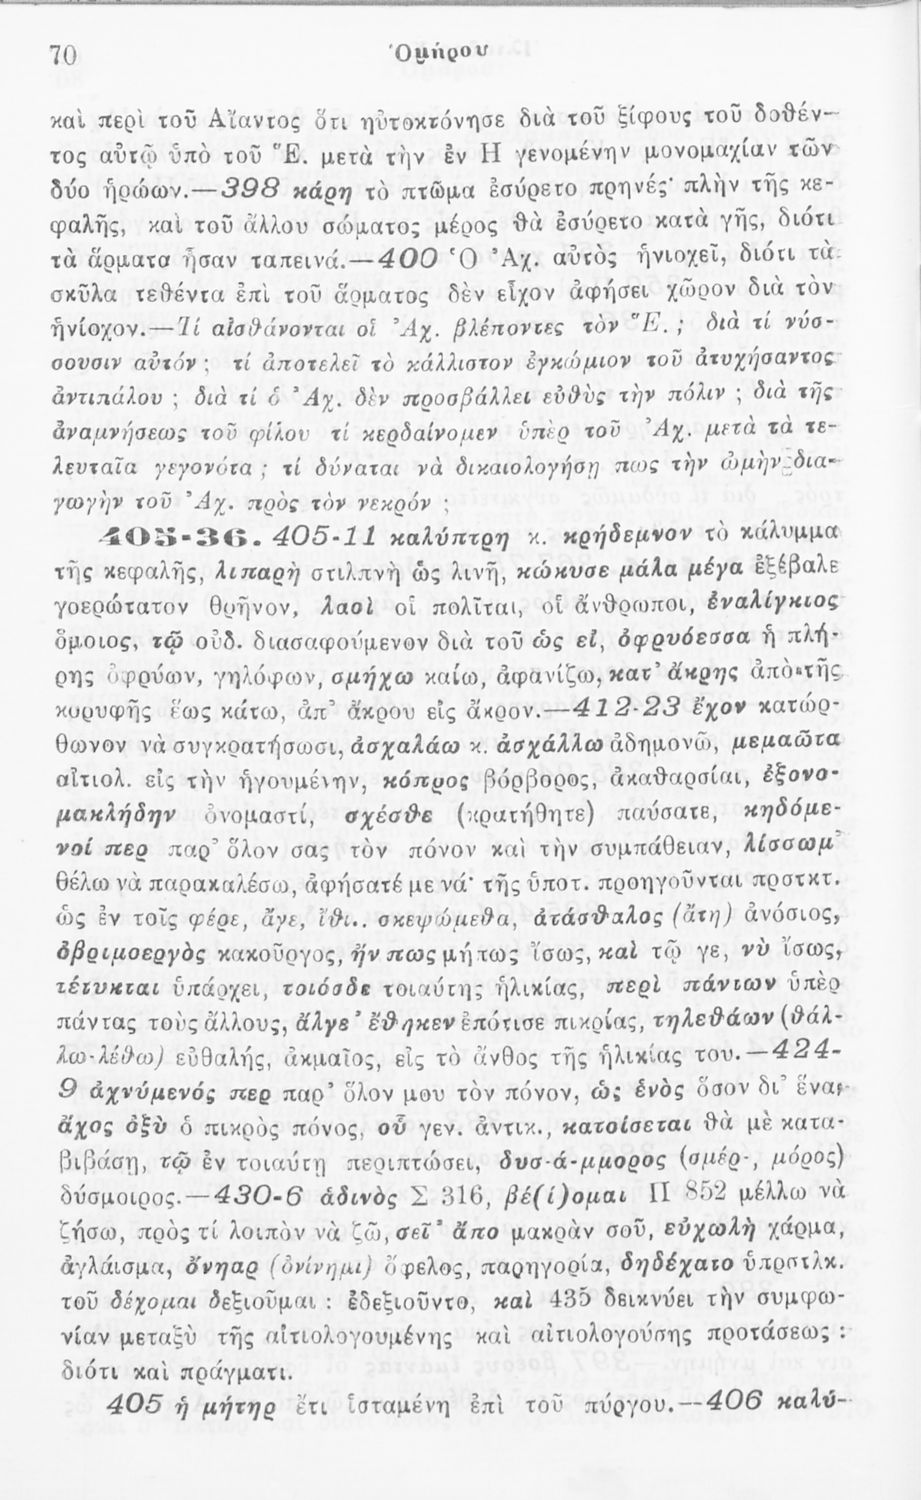 70
Ὁμήρου
καὶ περὶ τοῦ Αἴαντος ὅτι ηὐτοκτόνησε διὰ τοῦ ξίφους τοῦ δοθέν-
τος αὐτῷ ὑπὸ τοῦ Ἕ. μετὰ τὴν ἐν Η γενομένην μονομαχίαν τῶν
δύο ἡρώων.—398 κάρη τὸ πτῶμα ἐσύρετο πρηνές· πλὴν τῆς κε-
φαλῆς, καὶ τοῦ ἄλλου σώματος μέρος θὰ ἐσύρετο κατὰ γῆς, διότι
τὰ ἅρματα ἦσαν ταπεινά.—400 Ὁ Ἀχ. αὐτὸς ἡνιοχεῖ, διότι τὰ
σκῦλα τεθέντα ἐπὶ τοῦ ἅρματος δὲν εἶχον ἀφήσει χῶρον διὰ τὸν
ἡνίοχον.—Τί αἰσθάνονται οἱ Ἀχ. βλέποντες τὸν Ἕ. ; διὰ τί νύσ-
σουσιν αὐτόν ; τί ἀποτελεῖ τὸ κάλλιστον ἐγκώμιον τοῦ ἀτυχήσαντος
ἀντιπάλου ; διὰ τί ὁ Ἀχ. δὲν προσβάλλει εὐθὺς τὴν πόλιν ; διὰ τῆς
ἀναμνήσεως τοῦ φίλου τί κερδαίνομεν ὑπὲρ τοῦ Ἀχ. μετὰ τὰ τε-
λευταῖα γεγονότα ; τί δύναται νὰ δικαιολογήσῃ πως τὴν ὠμὴν δια-
γωγὴν τοῦ Ἀχ. πρὸς τὸν νεκρόν ;
405-36. 405-11 καλύπτρη κ. κρήδεμνον τὸ κάλυμμα
τῆς κεφαλῆς, λιπαρὴ στιλπνὴ ὡς λινῆ, κώκυσε μάλα μέγα ἐξέβαλε
γοερώτατον θρῆνον, λαοὶ οἱ πολῖται, οἱ ἄνθρωποι, ἐναλίγκιος
ὅμοιος, τῷ οὐδ. διασαφούμενον διὰ τοῦ ὡς εἰ, ὀφρυόεσσα ἡ πλή-
ρης ὀφρύων, γηλόφων, σμήχω καίω, ἀφανίζω, κατ' ἄκρης ἀπὸ τῆς
κορυφῆς ἕως κάτω, ἀπ' ἄκρου εἰς ἄκρον.—412-23 ἔχον κατώρ-
θωνον νὰ συγκρατήσωσι, ἀσχαλάω κ. ἀσχάλλω ἀδημονῶ, μεμαῶτα
αἰτιολ. εἰς τὴν ἡγουμένην, κόπρος βόρβορος, ἀκαθαρσίαι, ἐξονο-
μακλήδην ὀνομαστί, σχέσθε (κρατήθητε) παύσατε, κηδόμε-
νοί περ παρ' ὅλον σας τὸν πόνον καὶ τὴν συμπάθειαν, λίσσωμ'
θέλω νὰ παρακαλέσω, ἀφήσατέ με νά· τῆς ὑποτ. προηγοῦνται προτκτ.
ὡς ἐν τοῖς φέρε, ἄγε, ἴθι.. σκεψώμεθα, ἀτάσθαλος (ἄτη) ἀνόσιος,
ὀβριμοεργὸς κακοῦργος, ἤν πως μήπως ἴσως, καὶ τῷ γε, νὺ ἴσως,
τέτυκται ὑπάρχει, τοιόσδε τοιαύτης ἡλικίας, περὶ πάντων ὑπὲρ
πάντας τοὺς ἄλλους, ἄλγε' ἔθηκεν ἐπότισε πικρίας, τηλεθάων (θάλ-
λω-λέθω) εὐθαλής, ἀκμαῖος, εἰς τὸ ἄνθος τῆς ἡλικίας του.—424-
9 ἀχνύμενός περ παρ' ὅλον μου τὸν πόνον, ὡς ἑνὸς ὅσον δι' ἕνα,
ἄχος ὀξὺ ὁ πικρὸς πόνος, οὗ γεν. ἀντικ., κατοίσεται θὰ μὲ κατα-
βιβάσῃ, τῷ ἐν τοιαύτῃ περιπτώσει, δυσ-ά-μμορος (σμέρ-, μόρος)
δύσμοιρος.—430-6 ἁδινὸς Σ 316, βέ(ί)ομαι Π 852 μέλλω νὰ
ζήσω, πρὸς τί λοιπὸν νὰ ζῶ, σεῖ' ἄπο μακρὰν σοῦ, εὐχωλὴ χάρμα,
ἀγλάισμα, ὄνηαρ (ὀνίνημι) ὄφελος, παρηγορία, δηδέχατο ὑπρστλκ.
τοῦ δέχομαι δεξιοῦμαι : ἐδεξιοῦντο, καὶ 435 δεικνύει τὴν συμφω-
νίαν μεταξὺ τῆς αἰτιολογουμένης καὶ αἰτιολογούσης προτάσεως :
διότι καὶ πράγματι.
405 ἡ μήτηρ ἔτι ἱσταμένη ἐπὶ τοῦ πύργου.—406 καλύ-